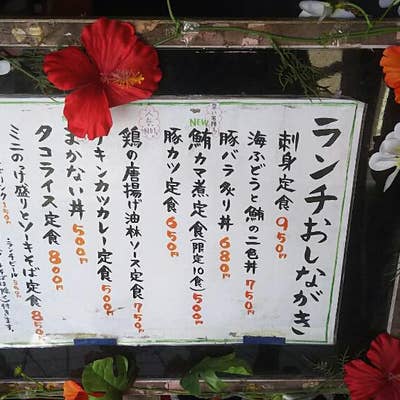 ランチおしながき
刺身定食 950円
海ぶどうと鮪の二色丼 750円
豚バラ炙り丼 680円
NEW
鮪カマ煮定食(限定10食) 500円
豚カツ定食 650円
鶏の唐揚げ油林ソース定食 750円
チキンカツカレー定食 500円
まかない丼 500円
タコライス定食 800円
ミニのっけ盛りとソーキそば定食 850